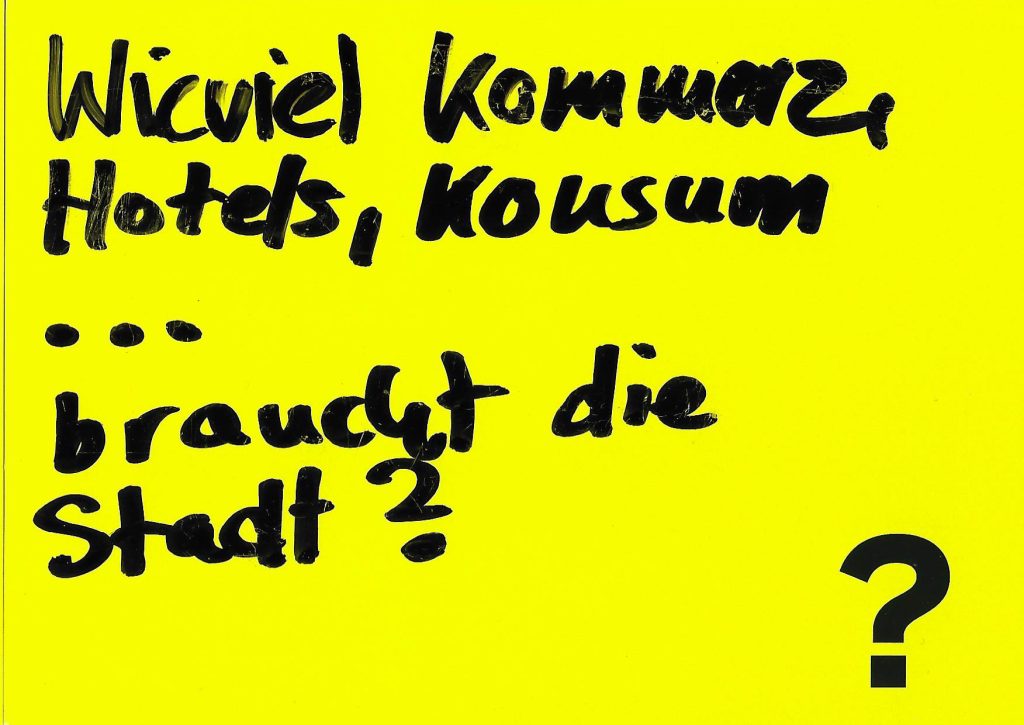 Wieviel Kommerz,
Hotels, Konsum
...
braucht die
Stadt?
?